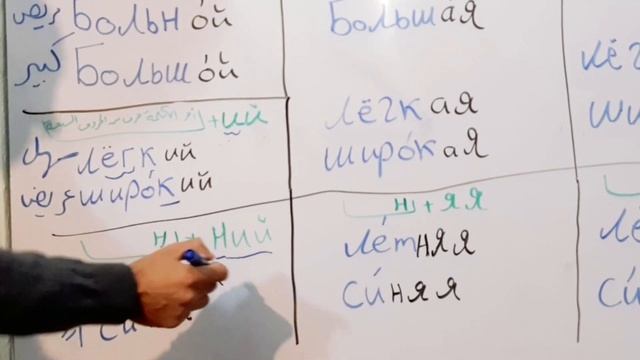 مريض Больно́й
كبير Большо́й
+ ий
سهل лёгкий
عريض широ́кий
н + ний
си
Больша́я
лёгкая
широ́кая
н + яя
ле́тняя
си́няя
лёг
ши
лё
си́